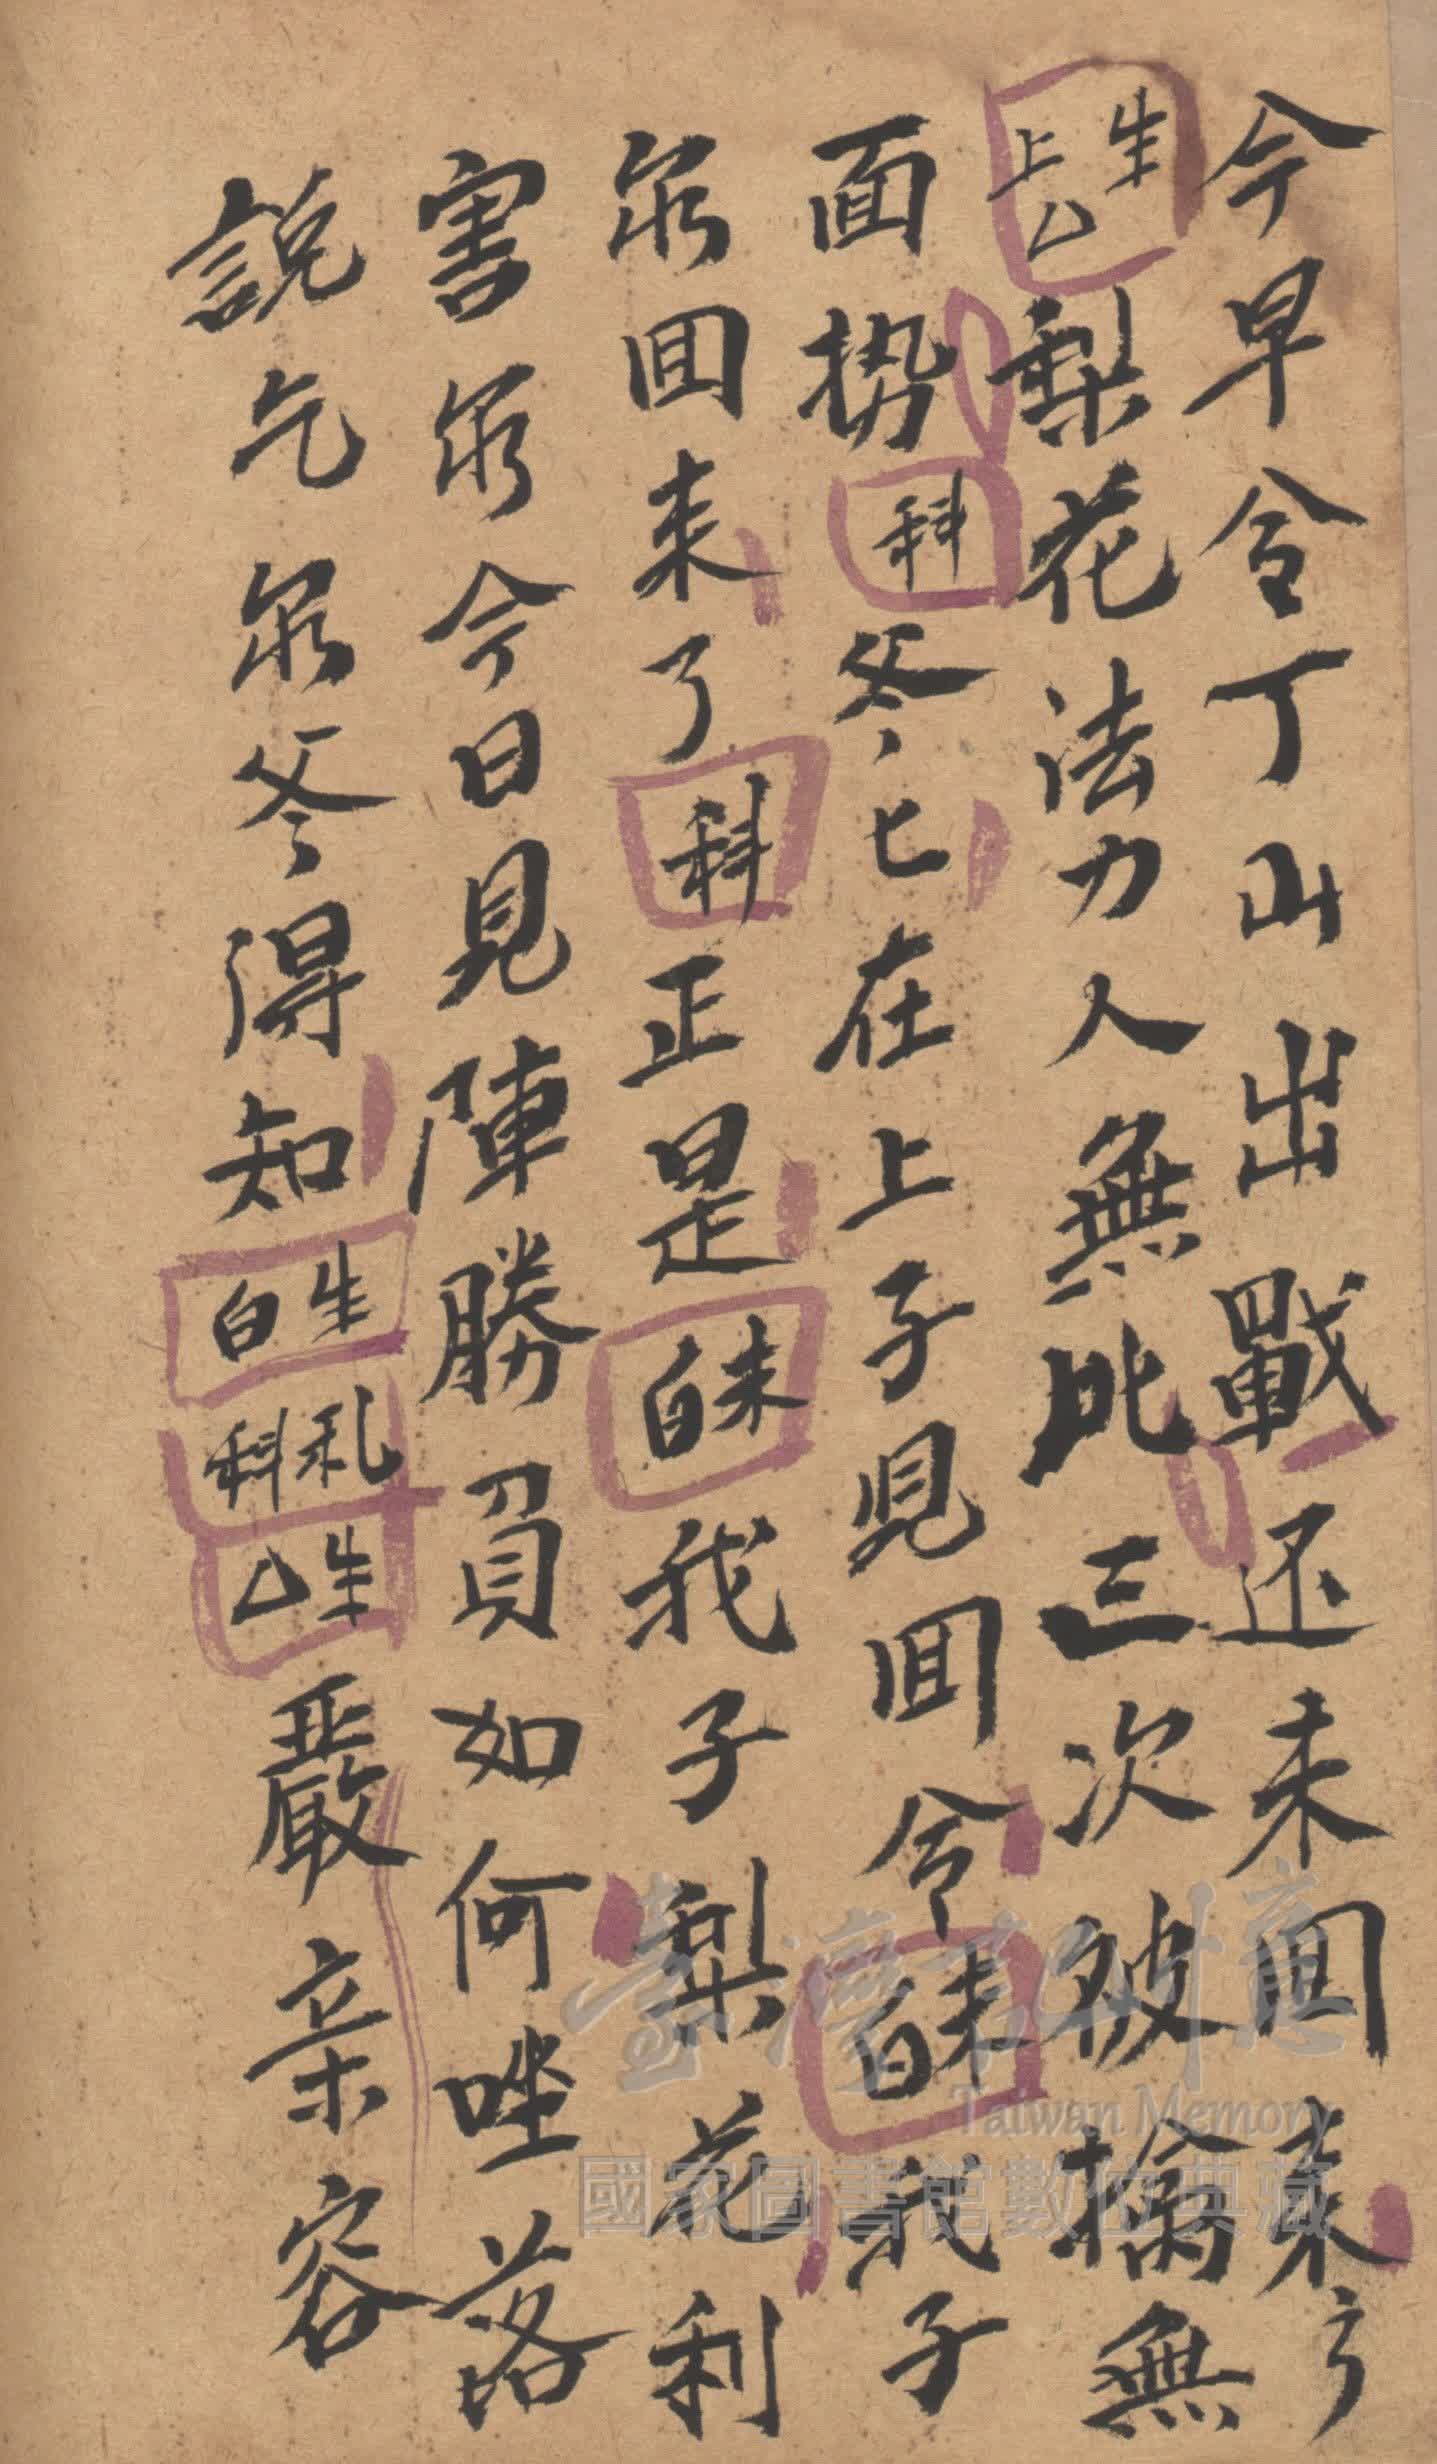 今早令丁山出戰还未囬來了
生上么梨花法力人無比三次被擒無
面㔟科爹匕在上子児囬令末白我子
尔囬来了科正是末白我子梨花利
害尔今日見陣勝負如何唑落
說乞尔爹得知生白礼科生么嚴亲容
臺灣記憶
Taiwan Memory
國家圖書館數位典藏